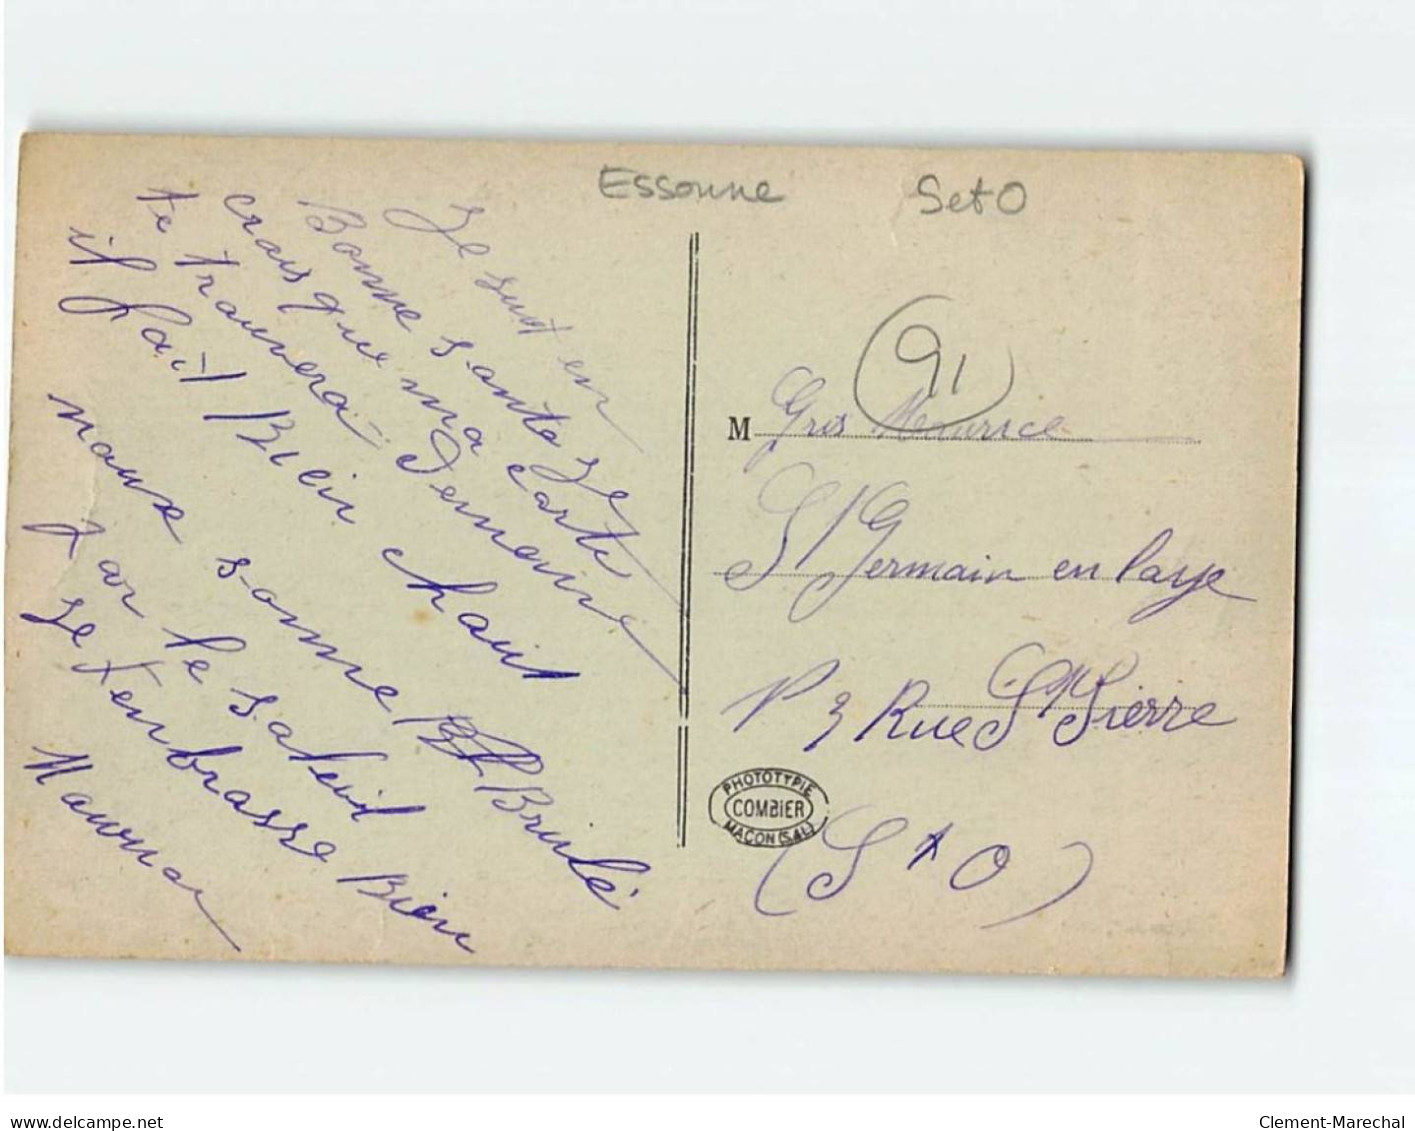 Essonne
S et O
91
Je suit en
Bonne sante Je
crais que ma carte
te trauvera demaine
il fait Bien chaut
naux somme Brulé
par le saleil
Je t'enbrasse Bien
M Gris Maurice
St Germain en Laye
P 3 Rue St Pierre
(S & O)
PHOTOTYPIE
COMBIER
MACON (S.&L.)
delcampe.net
Clement-Marechal